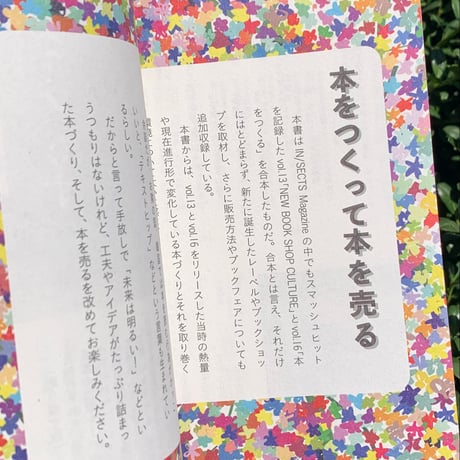 本をつくって本を売る
本書は IN/SECTS Magazine の中でもスマッシュヒット
を記録した vol.13「NEW BOOK SHOP CULTURE」と vol.16「本
をつくる」を合本したものだ。合本とは言え、それだけ
にはとどまらず、新たに誕生したレーベルやブックショッ
プを取材し、さらに販売方法やブックフェアについても
追加収録している。
本書からは、vol.13 と vol.16 をリリースした当時の熱量
や現在進行形で変化している本づくりとそれを取り巻く
いいと、「テキストヒップ」などという言葉も生まれてい
るらしい。
だからと言って手放しで「未来は明るい！」などとい
うつもりはないけれど、工夫やアイデアがたっぷり詰まっ
た本づくり、そして、本を売るを改めてお楽しみください。